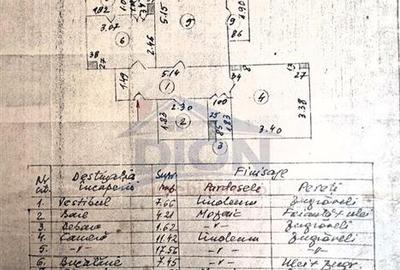 1.82
3.07
5.15
9
9
3.90
86
6
2.46
38
27
1.49
5.14
1
34
8
13
27
2.30
100
4
3.38
1.83
2
25
85
3
3.40
DION
Nr. crt. Destinația încăperii Supr. Finisaje
Pardoseli Pereți
1. Vestibul 7.66 Linoleum Zugrăveli
2 Baie 4.21 Mozaic Faianță + ulei
3 Debara 1.62 -"- Zugrăveli
4 Cameră 11.42 Linoleum Zugrăveli
5 -"- 17.56 -"- -"-
6 Bucătărie 7.45 -"- Ulei + Zugr.